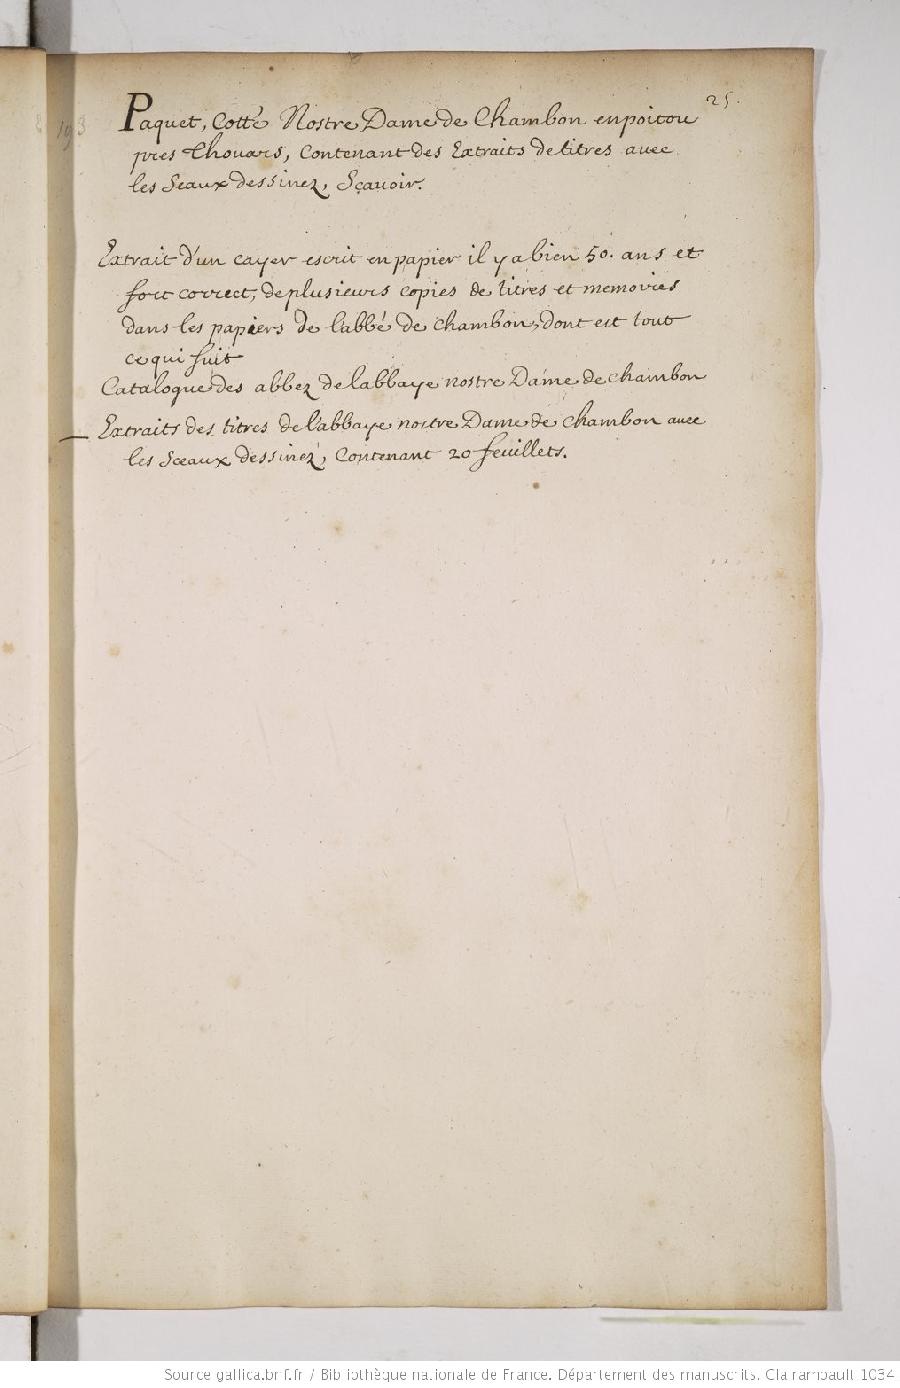 25.
193
Paquet, Cotté Nostre Dame de Chambon en poitou
pres Thouars, Contenant des Extraits de titres avec
les Seaux dessinez, Sçavoir.
Extrait d'un cayer escrit en papier il y a bien 50. ans et
fort correct, de plusieurs copies de titres et memoires
dans les papiers de l'abbé de Chambon, dont est tout
ce qui suit
Catalogue des abbez de l'abbaye nostre Dame de Chambon
Extraits des titres de l'abbaye nostre Dame de Chambon avec
les Sceaux dessinéz, Contenant 20 feuillets.
Source gallica.bnf.fr / Bibliothèque nationale de France. Département des manuscrits. Clairambault 1034